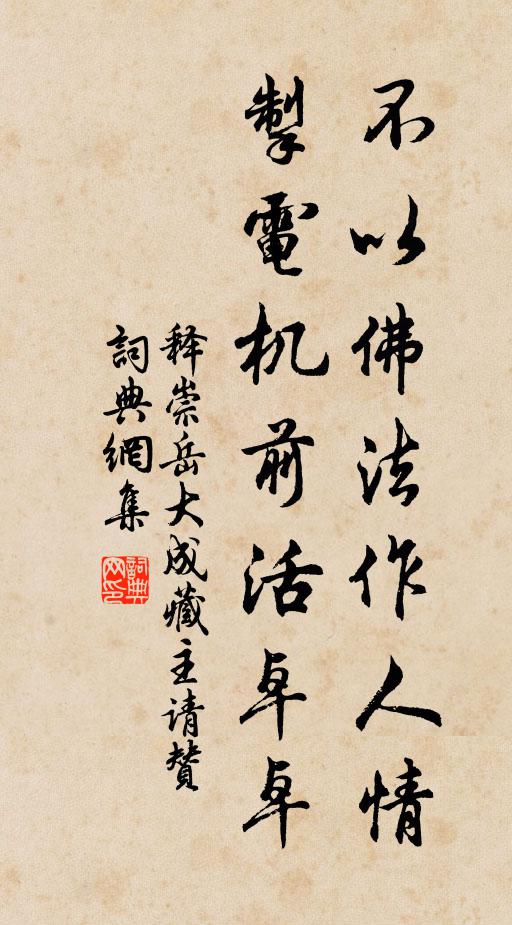 不以佛法作人情
掣電机前活卓卓
释崇岳大成藏主请贊
詞典網集
詞典网印